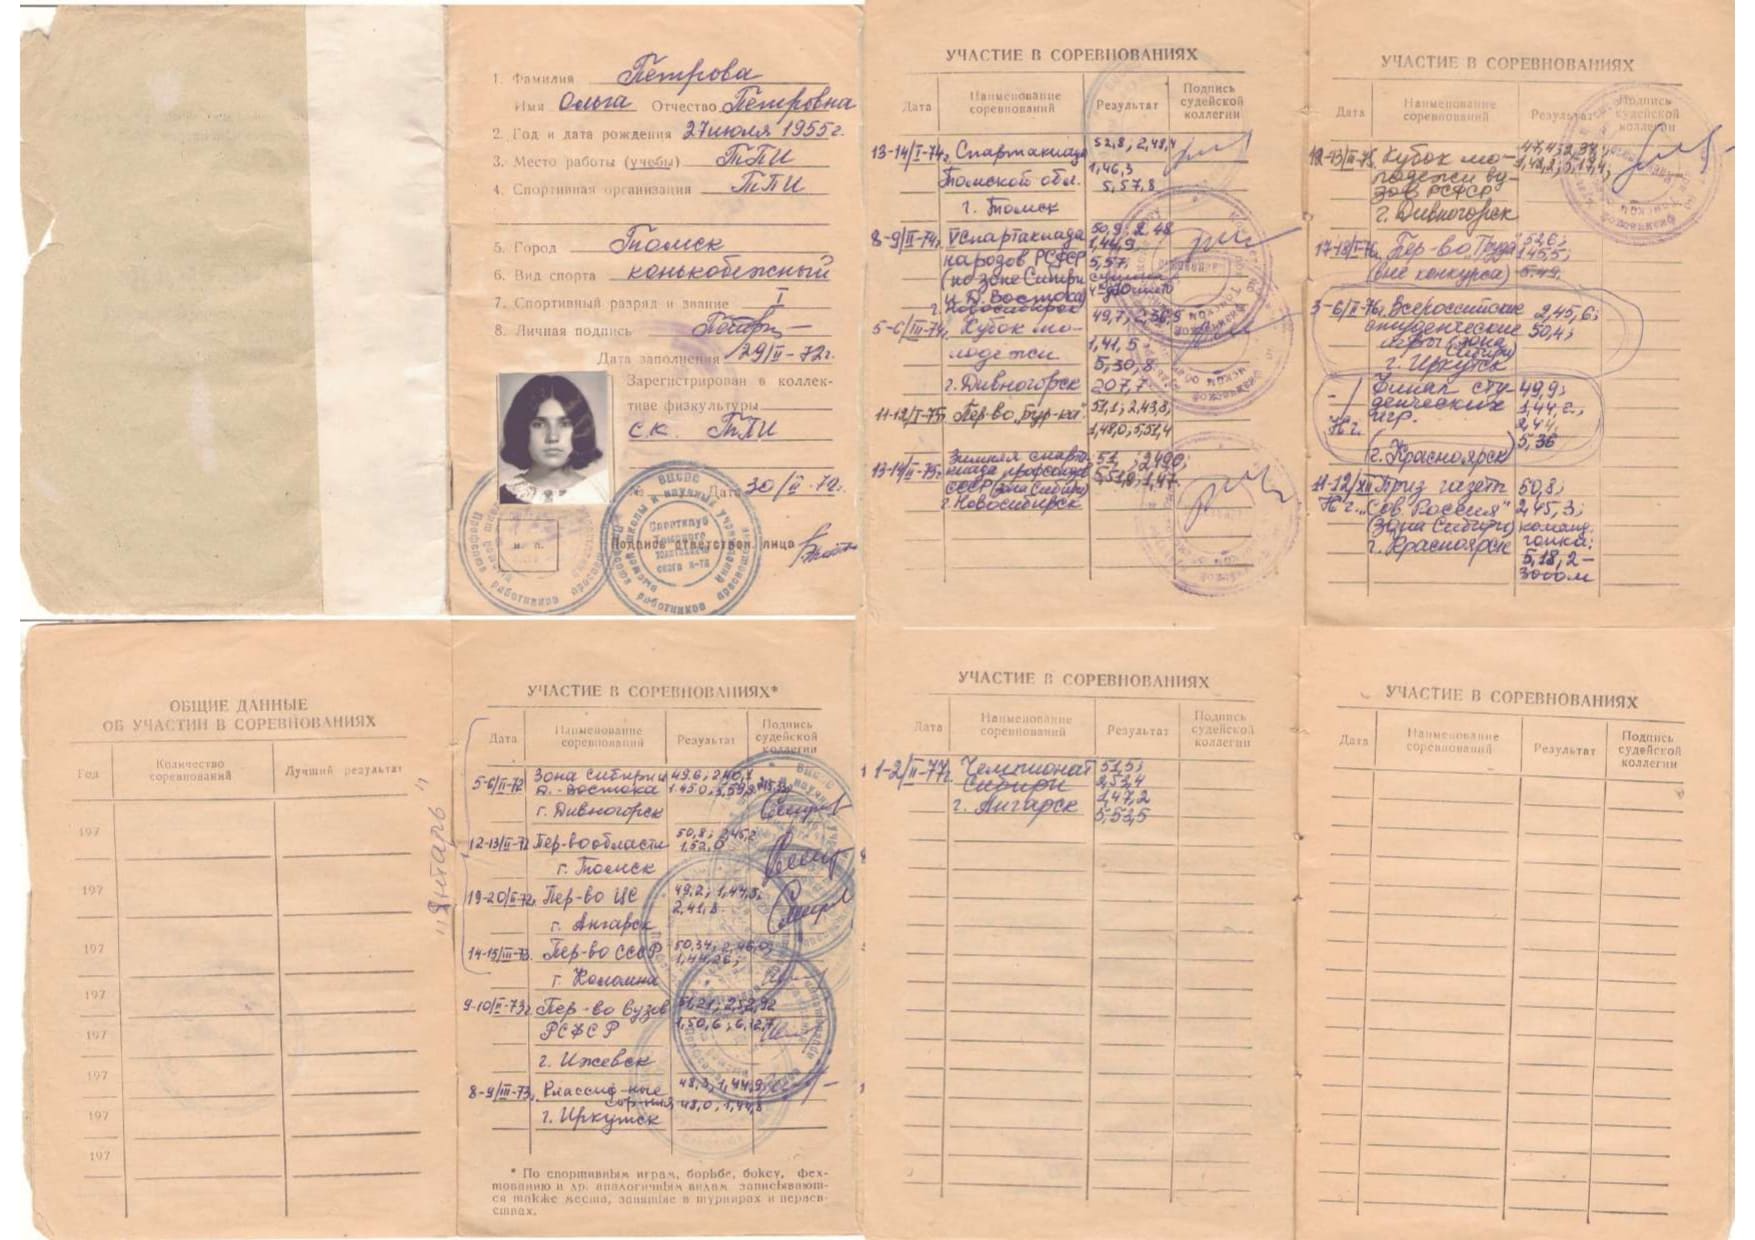 1. Фамилия Петрова
Имя Ольга Отчество Петровна
2. Год и дата рождения 27 июля 1955 г.
3. Место работы (учебы) ТПИ
4. Спортивная организация ТПИ
5. Город Томск
6. Вид спорта конькобежный
7. Спортивный разряд и звание I
8. Личная подпись
Дата заполнения 29/II-72г.
Зарегистрирован в коллек-
тиве физкультуры
с.к. ТПИ
Дата 30/II-72г.
м. п.
Подпись ответствен. лица
УЧАСТИЕ В СОРЕВНОВАНИЯХ
Дата Наименование соревнований Результат Подпись судейской коллегии
13-14/I-74г. Спартакиада 52,8, 2,48,4
Томской обл. 1,46,3
5,57,8
г. Томск
8-9/II-74г. V Спартакиада 50,9, 2,48
народов РСФСР 1,44,9
(по зоне Сибири 5,57,
и Д. Востока)
г. Новосибирск
5-6/III-74г. Кубок мо- 49,7, 2,36,9
лодежи 1,41,5;
5,30,8
г. Дивногорск 207,7
11-12/I-75г. Пер-во „Бур-ка" 51,1; 2,43,8;
1,48,0; 5,51,4
13-14/II-75г. Зимняя спарта-
киада профсоюзов
СССР (зона Сибири)
г. Новосибирск
УЧАСТИЕ В СОРЕВНОВАНИЯХ
Дата Наименование соревнований Результат Подпись судейской коллегии
12-13/III-75 Кубок мо-
лодежи ву-
зов РСФСР
г. Дивногорск
17-18/I-76г. Пер-во „Труда" 52,6;
(вне конкурса) 1,45,5;
5,49.
3-6/II-76г. Всероссийские 2,45,6;
студенческие 50,4;
игры зона
Сибири
г. Иркутск
Финал сту- 49,9;
денческих 1,44,2;
игр. 2,44,
5,36
(г. Красноярск)
11-12/XII Приз газеты 50,8;
76г. „Сов. Россия" 2,45,3;
(зона Сибири) команд.
г. Красноярск гонка:
5,18,2-
ОБЩИЕ ДАННЫЕ
ОБ УЧАСТИИ В СОРЕВНОВАНИЯХ
Год Количество соревнований Лучший результат
197
197
197
197
197
197
197
197
„Янтарь"
УЧАСТИЕ В СОРЕВНОВАНИЯХ*
Дата Наименование соревнований Результат Подпись судейской коллегии
5-6/II-72 Зона Сибири и 49,6; 2,40,7
Д.-Востока 1.45.0;
г. Дивногорск
12-13/II-72 Пер-во области 50,8; 2,45,2
1,52,0
г. Томск
19-20/II-72г. Пер-во ЦС 49,2; 1,44,5;
2,41,8
г. Ангарск
14-15/III-73. Пер-во СССР 50,34; 2,46,0;
г. Коломна
9-10/II-73г. Пер-во вузов
РСФСР 1,50,6; 6,12,7
г. Ижевск
8-9/III-73г. Классиф-ные 48,3; 1,44,9
сор-ния 48,0; 1,44,8
г. Иркутск
* По спортивным играм, борьбе, боксу, фех-
тованию и др. аналогичным видам записывают-
ся также места, занятые в турнирах и первен-
ствах.
УЧАСТИЕ В СОРЕВНОВАНИЯХ
Дата Наименование соревнований Результат Подпись судейской коллегии
1-2/II-77г. Чемпионат 51,5;
Сибири 2,53,4
г. Ангарск 1,47,2
5,53,5
УЧАСТИЕ В СОРЕВНОВАНИЯХ
Дата Наименование соревнований Результат Подпись судейской коллегии